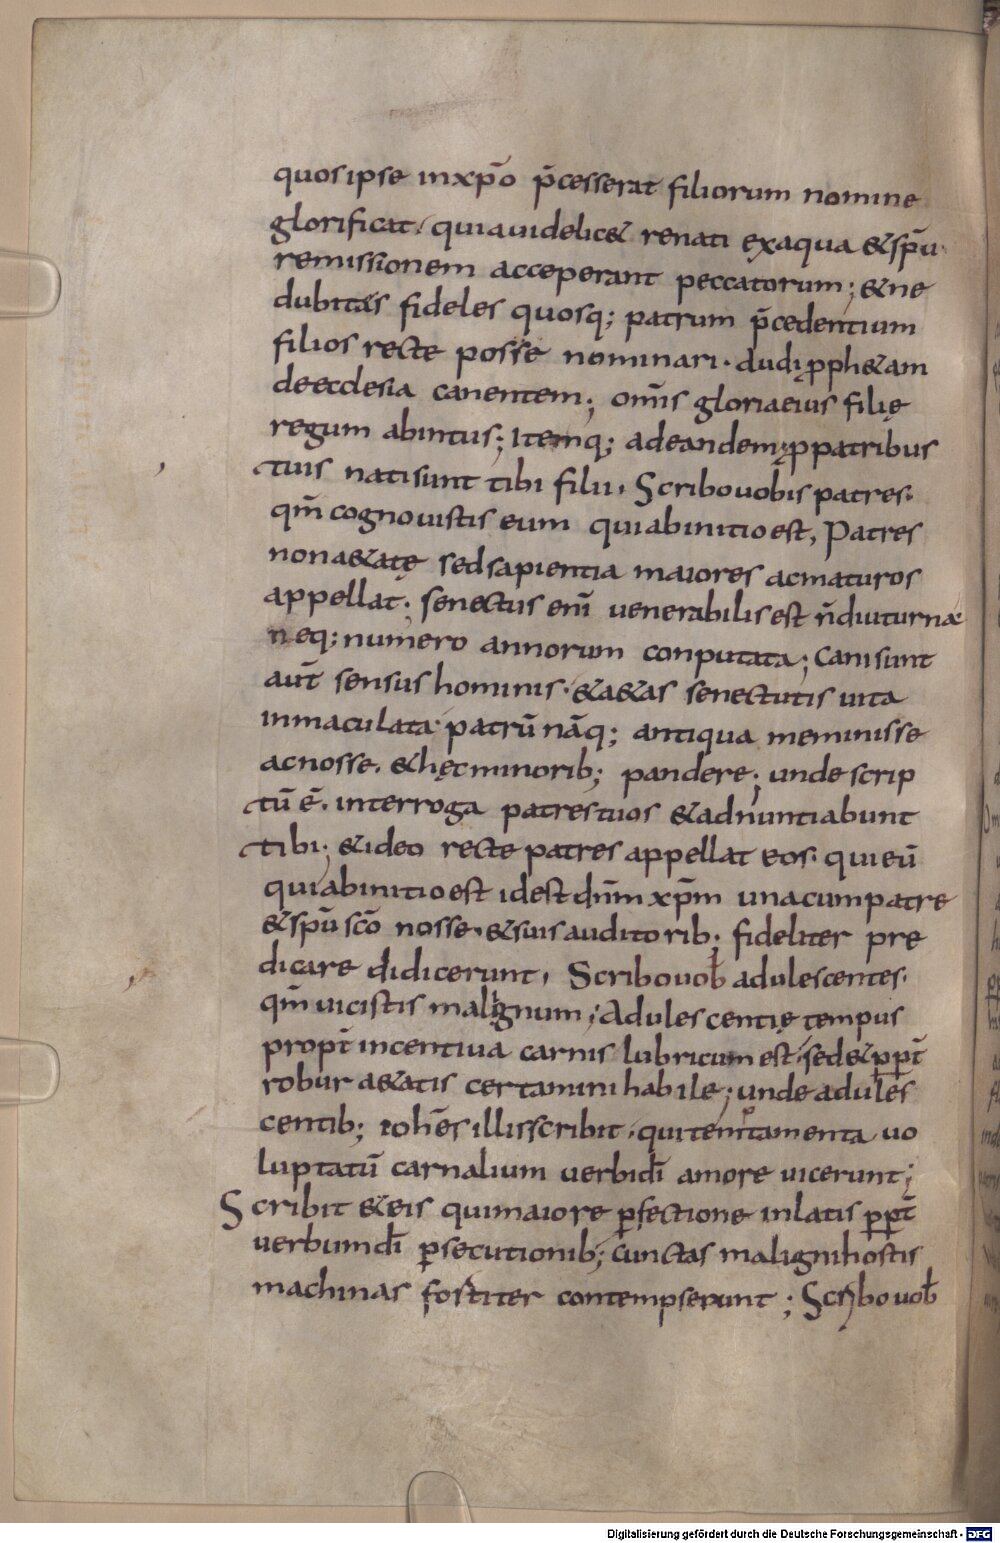 quos ipse in xp̄o p̄cesserat filiorum nomine
glorificat. quia uidelic& renati ex aqua & sp̄u
remissionem acceperant peccatorum; & ne
dubitas fideles quosq; patrum p̄cedentium
filios recte posse nominari. audi ꝓph&am
de ecclesia canentem; om̄s gloria eius filię
regum abintus; Itemq; ad eandem ꝓ patribus
tuis nati sunt tibi filii. Scribo uobis patres.
qm̄ cognouistis eum qui ab initio est, Patres
non a&atę sed sapientia maiores ac maturos
appellat. senectus eni venerabilis est n̄ diuturna
neq; numero annorum conputata; Cani sunt
aut̄ sensus hominis. & a&as senectutis uita
inmaculata. patrū nāq; antiqua meminisse
ac nosse. & hęc minorib; pandere; unde scrip
tū ē. interroga patres tuos & adnuntiabunt
tibi; & ideo recte patres appellat eos. qui eū
qui ab initio est id est dn̄m xp̄m una cum patre
& sp̄u sc̄o nosse. & suis auditorib; fideliter pre
dicare didicerunt. Scribo uob̄ adulescentes.
qm̄ uicistis malignum; Adulescentię tempus
propt̄ incentiua carnis lubricum est. sed & ꝓpt̄
robur a&atis certamini habile; unde adules
centib; iohēs illis scribit. qui temptamenta uo
luptatū carnalium verbi dī amore uicerunt;
Scribit & eis qui maiore ꝑfectione inlatis ꝓpt̄
verbum dī ꝑsecutionib; cunctas maligni hostis
machinas fortiter contempserunt; Scribo uob̄
Digitalisierung gefördert durch die Deutsche Forschungsgemeinschaft - DFG